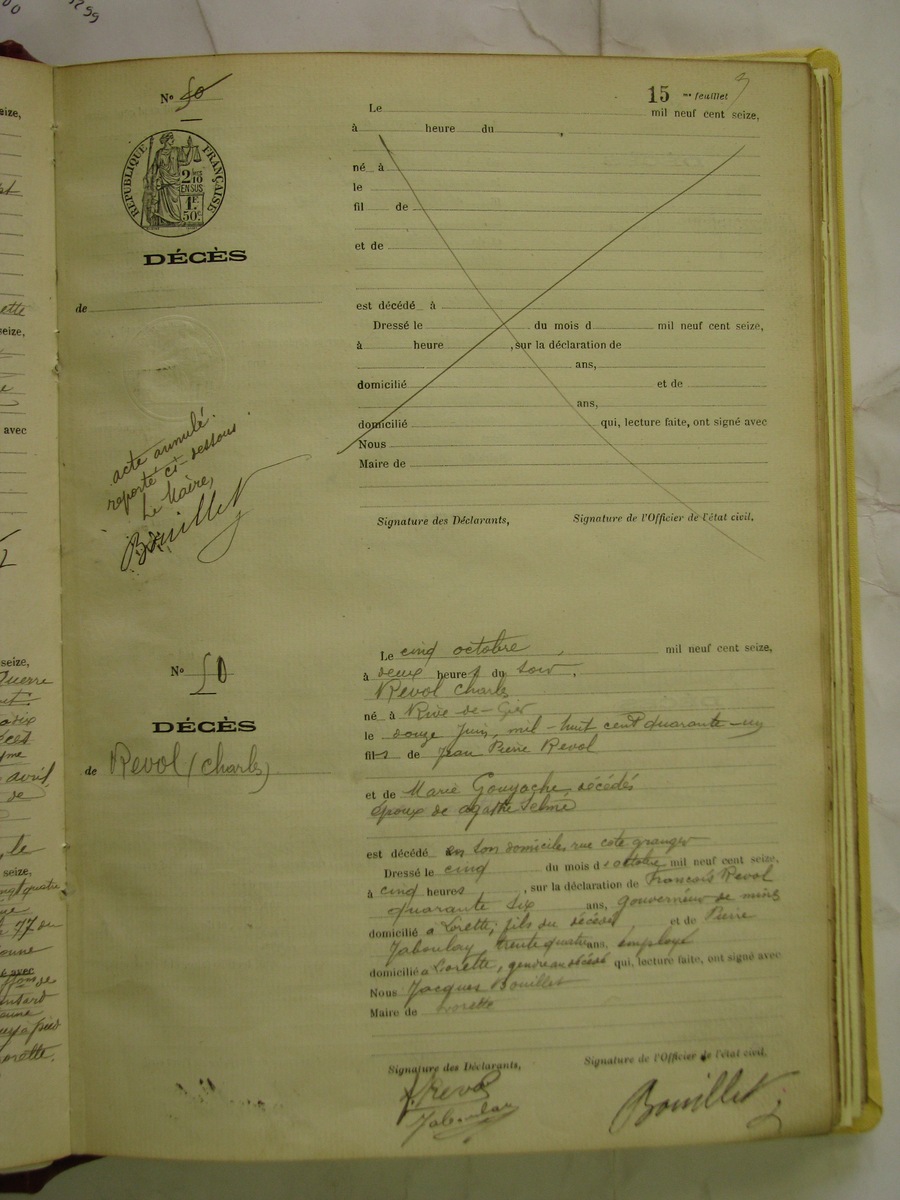 N° 50
15 me feuillet
Le mil neuf cent seize,
à heure du
RÉPUBLIQUE FRANÇAISE
2/10
EN SUS
1F
50c
né à
le
fil de
et de
DÉCÈS
de
est décédé à
Dressé le du mois d mil neuf cent seize,
à heure , sur la déclaration de
ans,
domicilié et de
ans,
domicilié qui, lecture faite, ont signé avec
Nous
Maire de
acte annulé
reporté ci-dessous
Le Maire,
Bouillet
Signature des Déclarants, Signature de l'Officier de l'état civil,
N° 50
DÉCÈS
de Revol (Charles)
Le cinq octobre mil neuf cent seize,
à deux heures du soir,
Revol Charles
né à Rive-de-Gier
le douze juin, mil-huit cent quarante-un
fils de Jean Pierre Revol
et de Marie Gouyache, décédés
époux de agathe Selme
est décédé en son domicile, rue cote granger
Dressé le cinq du mois d'octobre mil neuf cent seize,
à cinq heures, sur la déclaration de Francois Revol
quarante six ans, gouverneur de mines
domicilié a Lorette, fils du décédé, et de Pierre
Jaboulay trente quatre ans, employé
domicilié a Lorette, gendre au décédé qui, lecture faite, ont signé avec
Nous Jacques Bouillet
Maire de Lorette
Signature des Déclarants, Signature de l'Officier de l'état civil,
F. Revol
Jaboulay
Bouillet